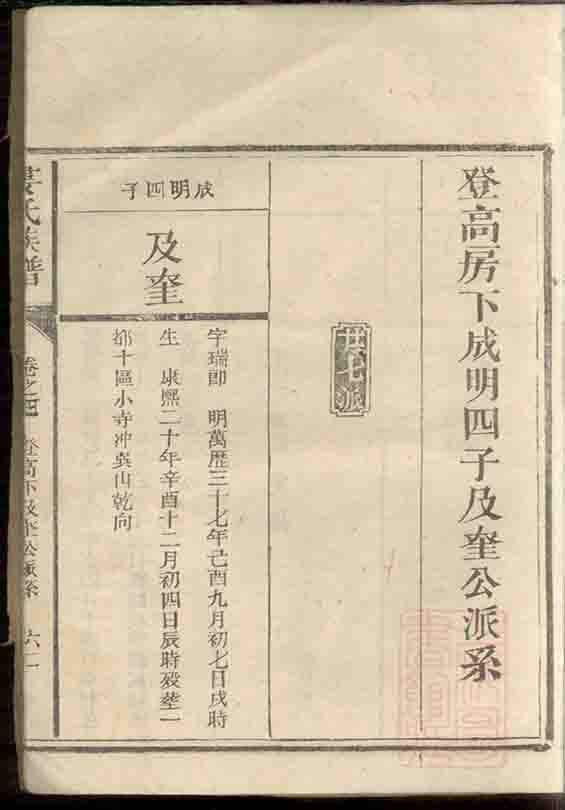 登高房下成明四子及奎公派系
廿七派
成明四子
及奎
字瑞郎　明萬歷三十七年己酉九月初七日戌時
生　康熙二十年辛酉十二月初四日辰時殁塟一
都十區小寺冲巽山乾向
氏族譜
卷之四　登高下及奎公派系　六一